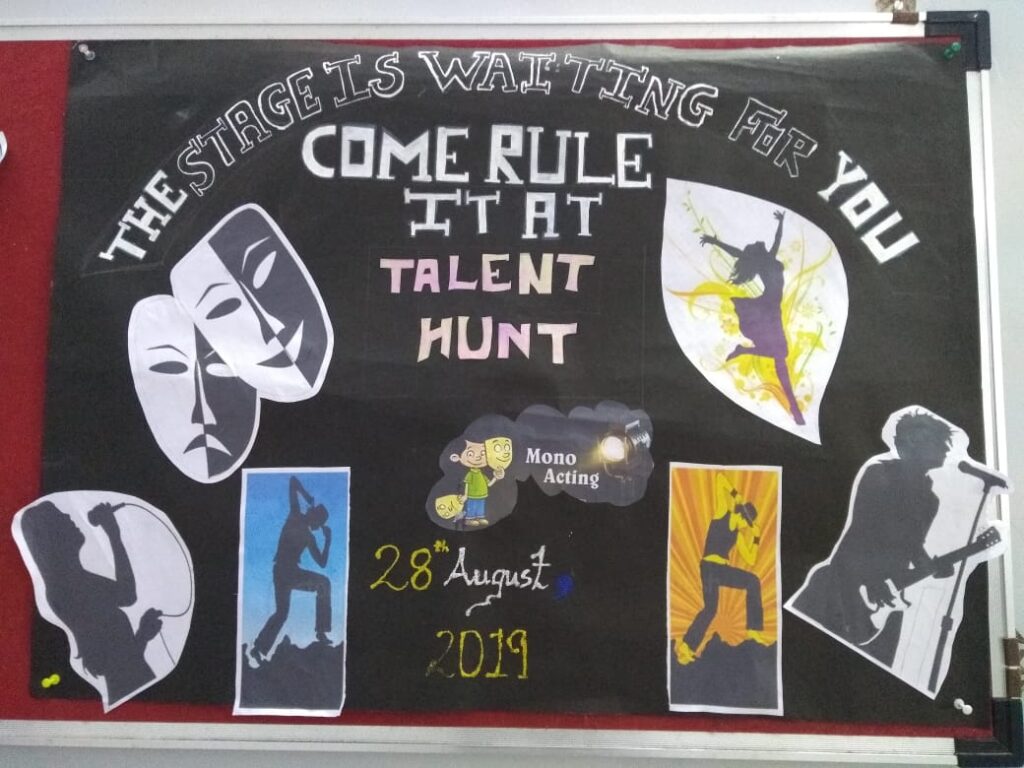 THE STAGE IS WAITING FOR YOU
COME RULE
IT AT
TALENT
HUNT
Mono
Acting
28th August,
2019